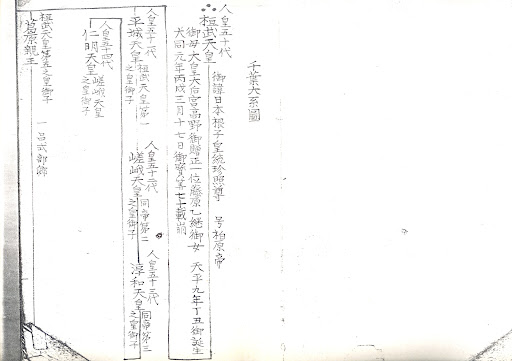 千葉大系圖
人皇五十代
桓武天皇 御諱日本根子皇統珍照尊 号柏原帝
御母大皇大后宮高野御贈正一位藤原乙継御女 天平九年丁丑御誕生
大同元年丙戌三月十七日御寳算七十載崩
人皇五十一代
平城天皇 桓武天皇第一
之皇御子
人皇五十二代
嵯峨天皇 同帝第二
之皇御子
人皇五十三代
淳和天皇 同帝第三
之皇御子
人皇五十四代
仁明天皇 嵯峨天皇
之皇御子
桓武天皇第五之皇御子
葛原親王 一品式部卿